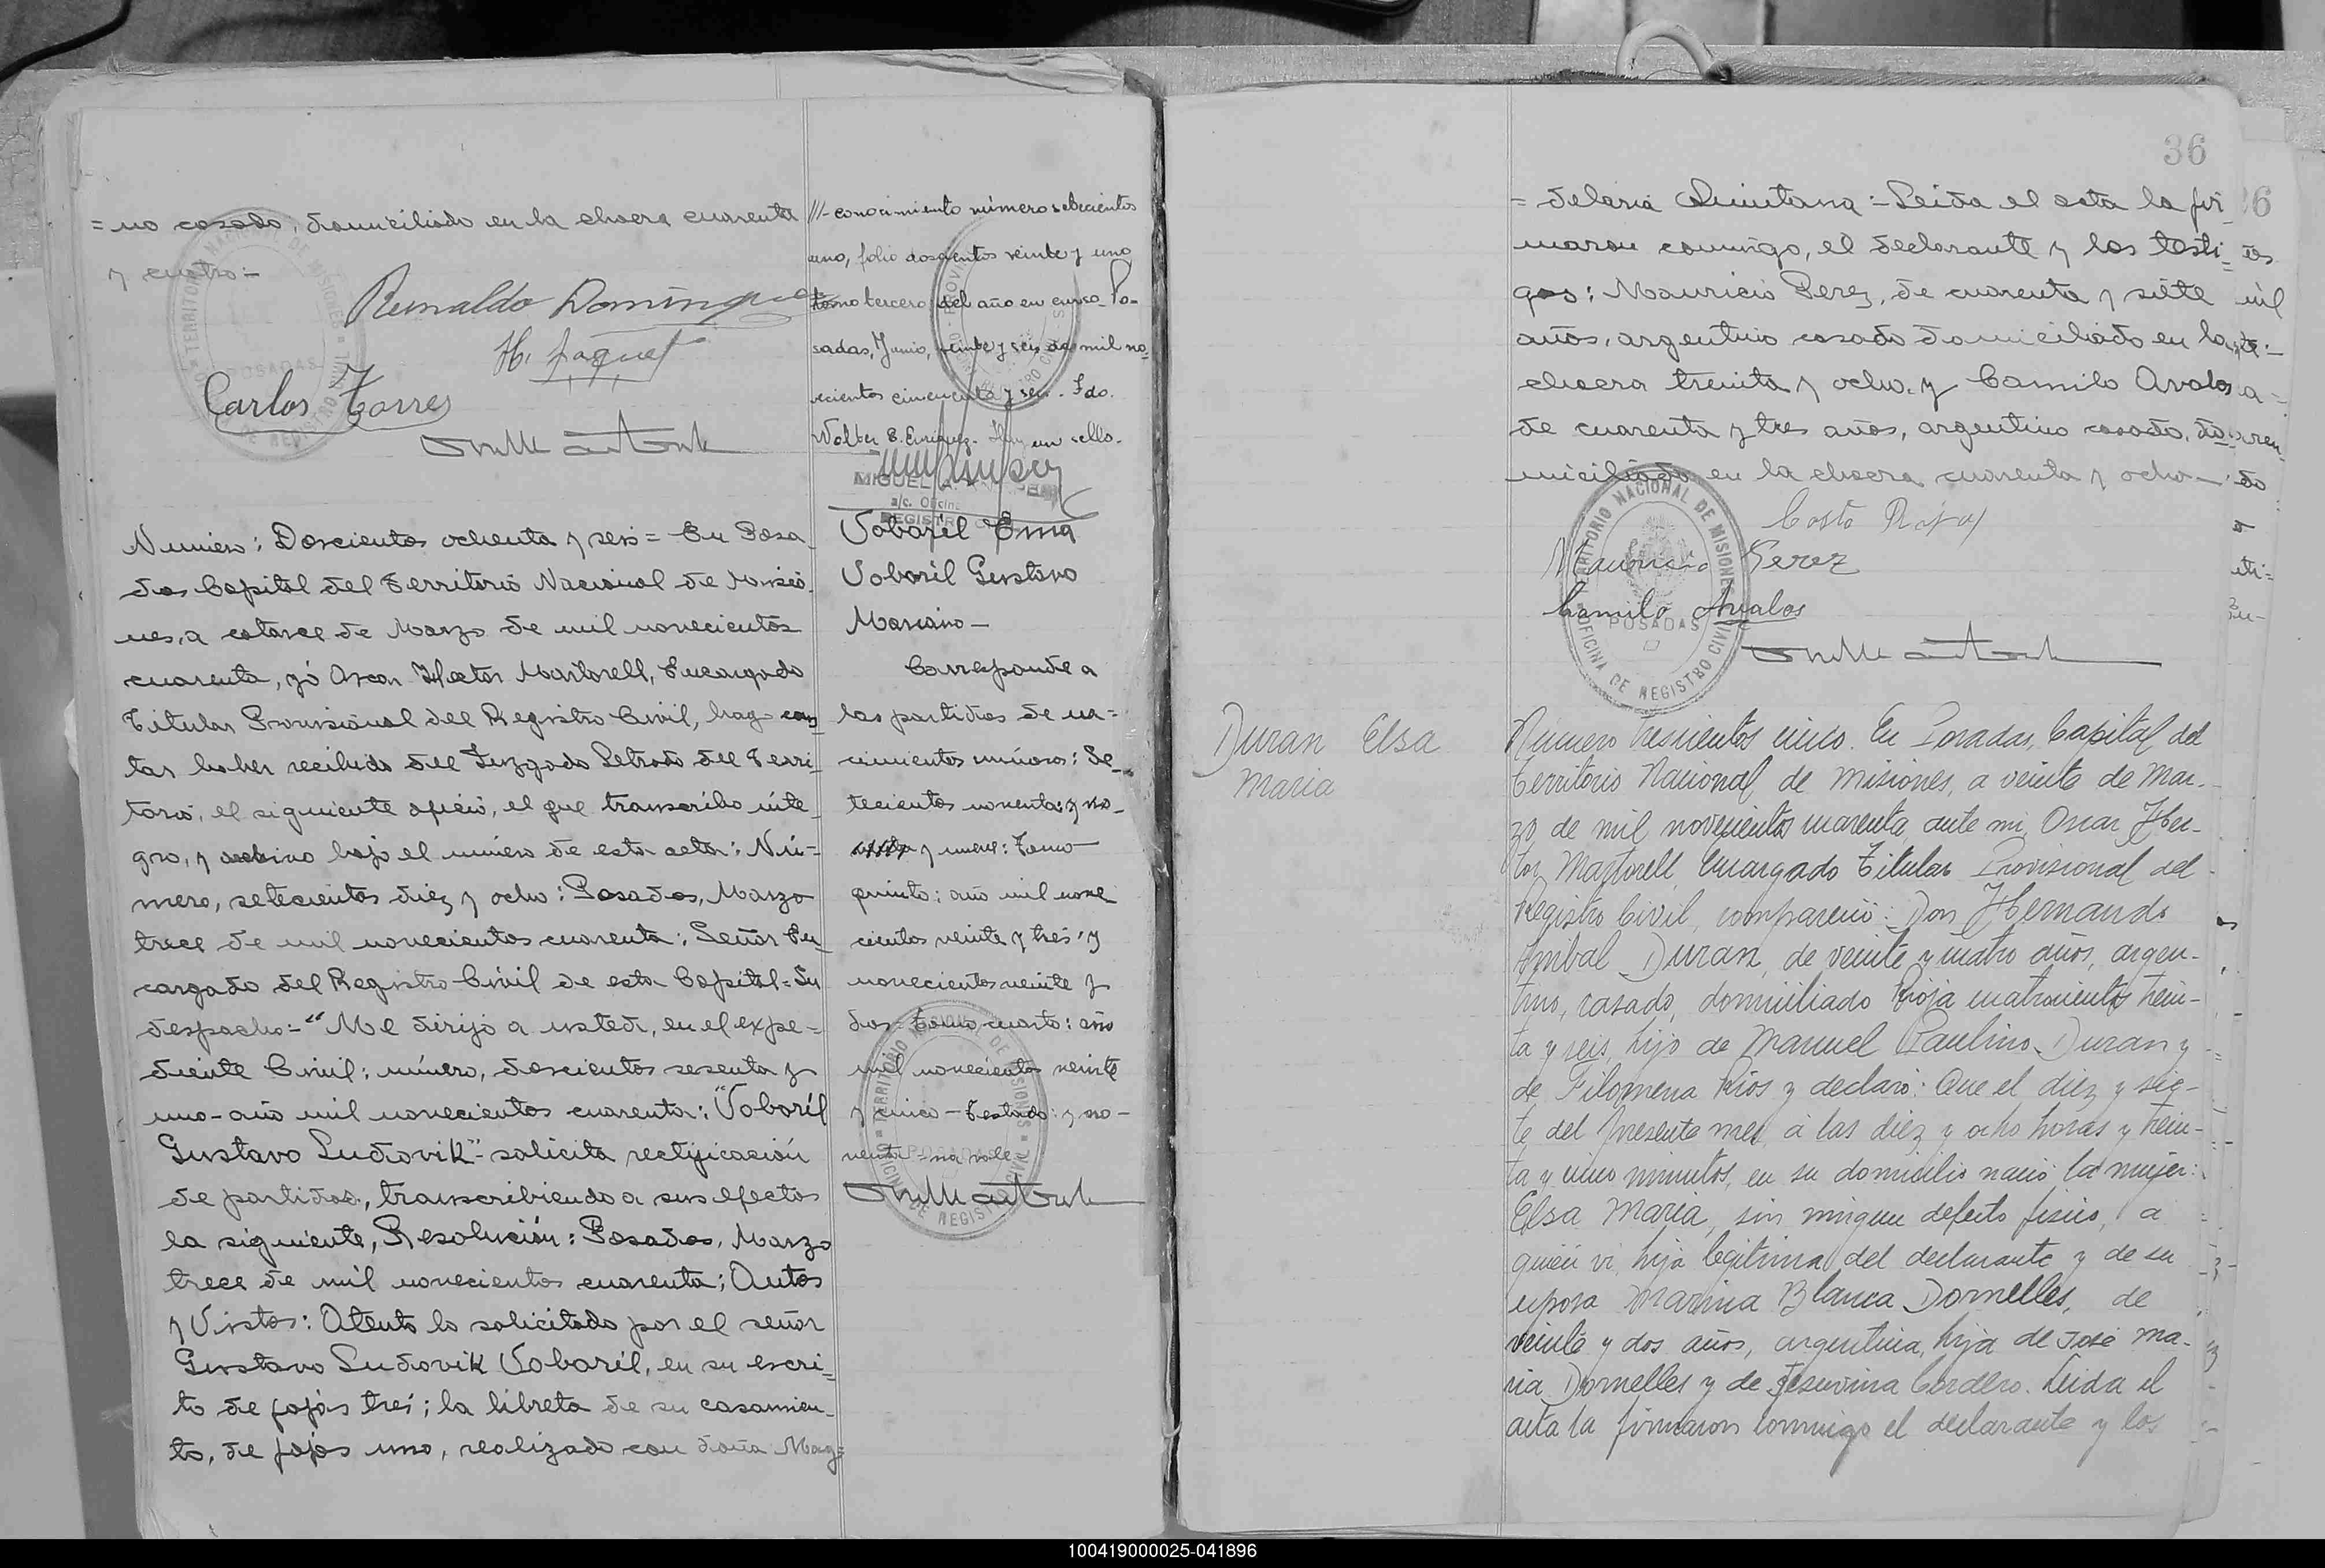 = no casado, domiciliado en la chacra cuarenta
y cuatro =
Reinaldo Dominguez
H. Paquet
Carlos Torres
Numero: Doscientos ochenta y seis = En Posa-
das Capital del Territorio Nacional de Misio-
nes, a catorce de Marzo de mil novecientos
cuarenta, yó Oscar Hector Martorell, Encargado
Titular Provisional del Registro Civil, hago cons
tar haber recibido del Juzgado Letrado del Terri-
torio, el siguiente oficio, el que transcribo inte-
gro, y archivo bajo el número de esta acta: Nú-
mero, setecientos diez y ocho: Posadas, Marzo
trece de mil novecientos cuarenta: Señor En-
cargado del Registro Civil de esta Capital = Su
despacho: = "Me dirijo a usted, en el expe-
diente Civil: número, doscientos sesenta y
uno - año mil novecientos cuarenta: "Voboril
Gustavo Ludovik" - solicita rectificación
de partidas, transcribiendo a sus efectos
la siguiente, Resolución: Posadas, Marzo
trece de mil novecientos cuarenta; Autos
y Vistos: Atento lo solicitado por el señor
Gustavo Ludovik Voboril, en su escri-
to de fojas tres; la libreta de su casamien-
to, de fojas uno, realizado con doña Mag=
///- conocimiento número setecientos
uno, folio doscientos veinte y uno
tomo tercero del año en curso. Po-
sadas, Junio, veinte y seis de mil no-
vecientos cincuenta y seis. Fdo.
Walter E. Enriquez. Hay un sello.
MIGUEL A.
a/c. Oficina
REGISTRO
Voboril Ema
Voboril Gustavo
Mariano -
Corresponde a
las partidas de na=
cimientos números: Se-
tecientos noventa: y no-
y nueve: Tomo
quinto: año mil nove
cientos veinte y tres: y
novecientos veinte y
dos = tomo cuarto: año
mil novecientos veinte
y cinco - Testado: y no-
venta = no vale
36
= delaria Quintana: - Leida el acta la fir-
maron conmigo, el declarante y los testi-
gos: Mauricio Perez, de cuarenta y siete
años, argentino casado domiciliado en la
chacra treinta y ocho. y Camilo Avalos
de cuarenta y tres años, argentino casado, do-
miciliado en la chacra cuarenta y ocho -
Mauricio Perez
Camilo Avalos
TERRITORIO NACIONAL DE MISIONES
POSADAS
OFICINA DE REGISTRO CIVIL
Duran Elsa
Maria
Numero trescientos cinco. En Posadas, Capital del
Territorio Nacional de Misiones, a veinte de Mar-
zo de mil novecientos cuarenta, ante mi, Oscar Hec-
tor Martorell, Encargado Titular Provisional del
Registro Civil, compareció: Don Hernando
Anibal Duran, de veinte y cuatro años, argen-
tino, casado, domiciliado Rioja cuatrocientos trein-
ta y seis, hijo de Manuel Paulino Duran y
de Filomena Rios y declaró: Que el diez y sie-
te del presente mes, a las diez y ocho horas y trein-
ta y cinco minutos, en su domicilio nació la mujer:
Elsa Maria, sin ningun defecto fisico, a
quien vi, hija legitima del declarante y de su
esposa Marina Blanca Dornelles, de
veinte y dos años, argentina, hija de José Ma-
ria Dornelles y de Jesuvina Cordero. Leida el
acta la firmaron conmigo el declarante y los
100419000025-041896